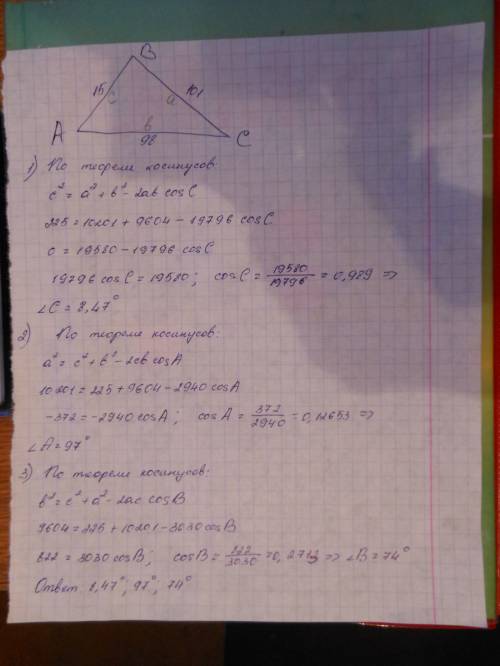 B
15 c a 101
A b C
98
1) По теореме косинусов:
c² = a² + b² - 2ab cosC
225 = 10201 + 9604 - 19796 cosC
0 = 19580 - 19796 cosC
19796 cosC = 19580 ; cosC = 19580/19796 = 0,989 =>
∠C = 8,47°
2) По теореме косинусов:
a² = c² + b² - 2cb cosA
10201 = 225 + 9604 - 2940 cosA
-372 = -2940 cosA ; cosA = 372/2940 = 0,12653 =>
∠A = 97°
3) По теореме косинусов:
b² = c² + a² - 2ac cosB
9604 = 225 + 10201 - 3030 cosB
822 = 3030 cosB ; cosB = 822/3030 = 0,2713 => ∠B = 74°
Ответ: 8,47° ; 97° ; 74°